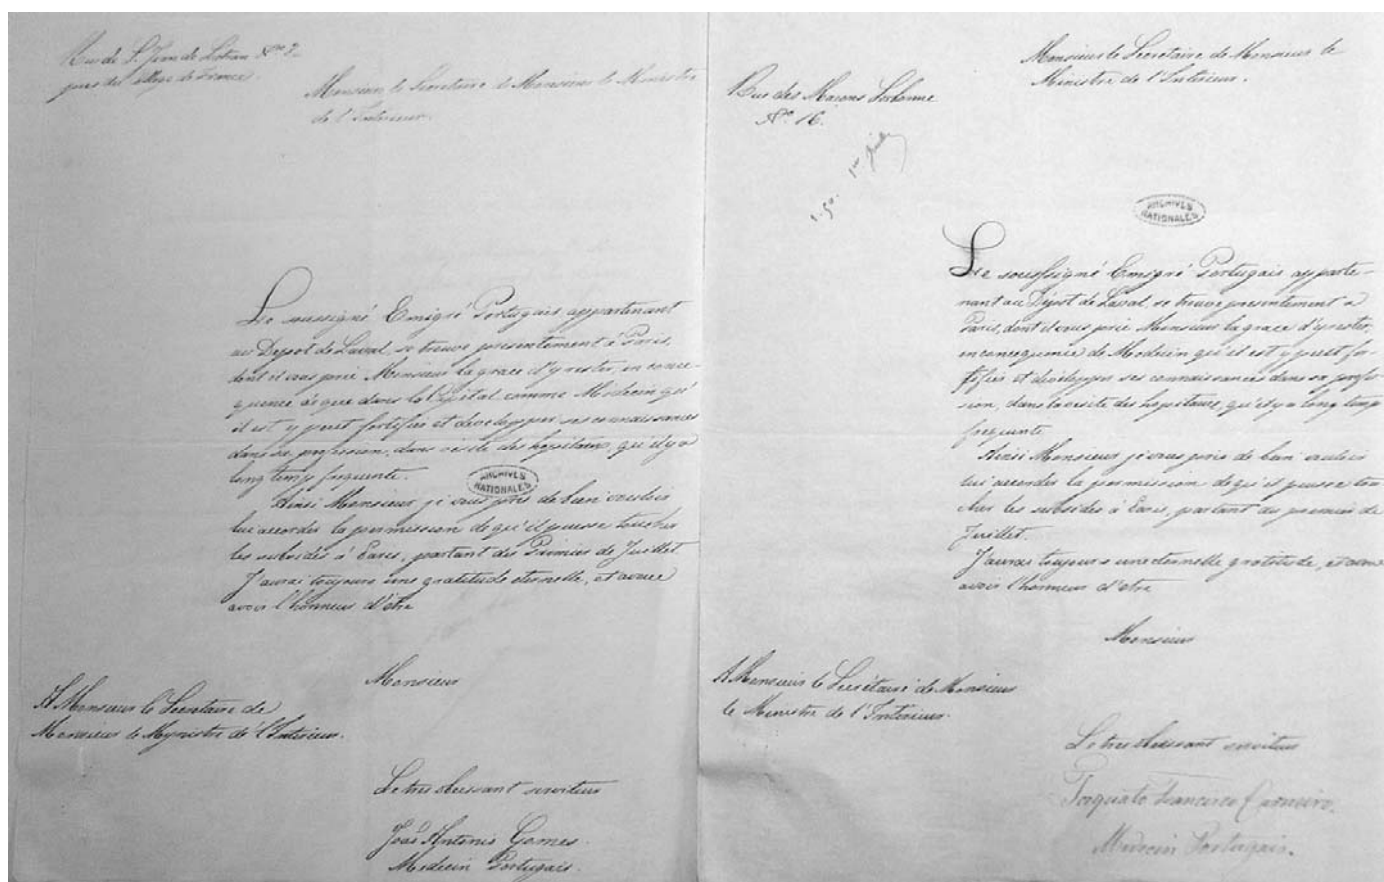 Rue de St. Jean de Latran No. 2
pres del college de France.
Monsieur le Secretaire de Monsieur le Ministre
de l'Interieur.
Le sussigné Emigré Portugais appartenant
au Depot de Laval, se treuve presentement à Paris,
dont il vous prie Monsieur la grace d'y rester, en conce-
quence de que dans la Capital comme Medecin qu'
il est y peut fortifier et developper ses connaissances
dans sa profession, dans visite des hopitaux, qu'il y a
long temp frequente.
ARCHIVES
NATIONALES
Ainsi Monsieur je vous pris de bien vouloir
lui accorder la permission de qu'il puisse toucher
les subsides à Paris, partant du Primier de Juillet.
J'aurai toujours une gratitude eternelle, et
avoir l'honneur d'etre
Monsieur
A Monsieur le Secretaire de
Monsieur le Mynistre de l'Interieur.
Le tres obeissant serviteur
João Antonio Gomes.
Medecin Portugais.
Monsieur le Secretaire de Monsieur le
Ministre de l'Interieur.
Rue des Macons Sorbonne
No. 16.
ARCHIVES
NATIONALES
Le soussigné Emigré Portugais apparte-
nant au Dépot de Laval, se treuve presentement a
Paris, dont il vous prie Monsieur la grace d'y rester,
en concequence de Medecin qu'il est y peut for-
tifier et developper ses connaissances dans sa profes-
sion, dans la visite des hopitaux, qu'il y a long temp
frequente
Ainsi Monsieur je vous pris de bien vouloir
lui accorder la permission de qu'il puisse tou-
cher les subsides à Paris, partant du premier de
Juillet.
J'aurai toujours une eternelle gratitude, et
avoir l'honneur d'etre
Monsieur
A Monsieur le Secrétaire de Monsieur
le Ministre de l'Interieur.
Le tres obeissant serviteur
Torquato Francisco Carneiro.
Medecin Portugais.